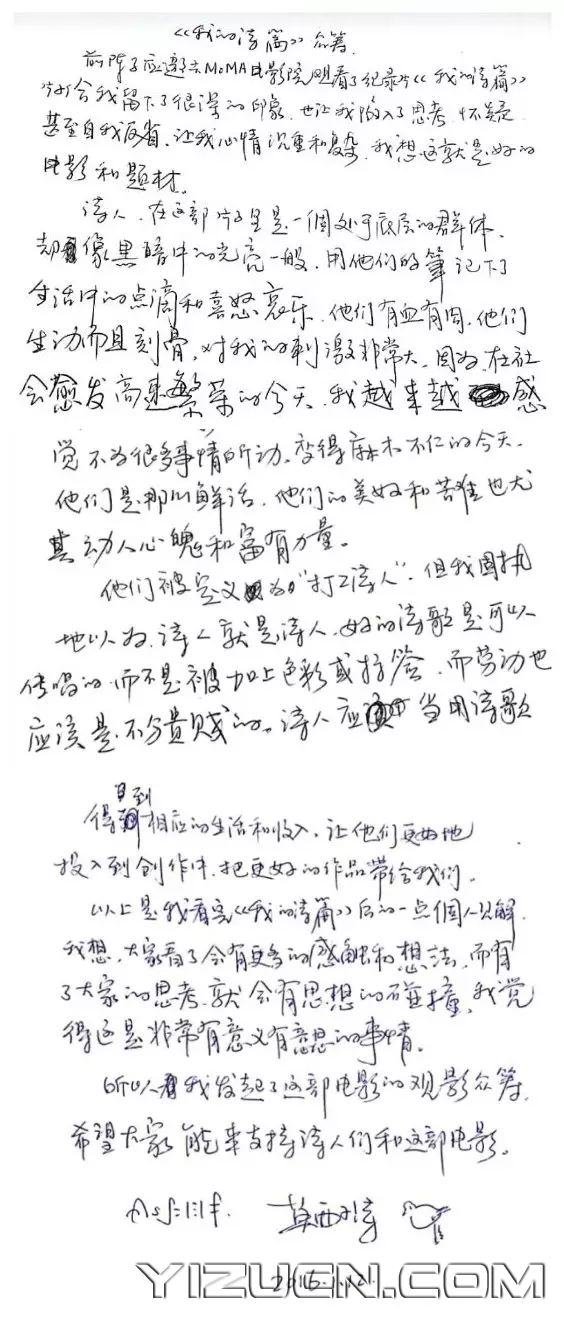 《我的诗篇》众筹
前阵子应邀去MoMA电影院观看了纪录片《我的诗篇》
给我留下了很深的印象,也让我陷入了思考,怀疑
甚至自我反省,让我心情沉重和复杂,我想这就是好的
电影和题材。
诗人,在这部片子里是一個处于底层的群体,
却像黑暗中的光亮一般,用他们的筆记下了
生活中的点滴和喜怒哀乐,他们有血有肉,他们
生动而且刻骨,对我的刺激非常大,因为,在社
会愈发高速繁荣的今天,我越来越感
觉不为很多事情所动,变得麻木不仁的今天,
他们是那么鲜活,他们的美好和苦难也尤
其动人心魄和富有力量。
他们被定义为"打工诗人",但我固执
地以为,诗人就是诗人,好的诗歌是可以
传唱的,而不是被加上色彩或标签,而劳动也
应该是不分贵贱的。诗人应当用诗歌
得到相应的生活和收入,让他们更好地
投入到创作中,把更好的作品带给我们。
以上是我看完《我的诗篇》后的一点個人见解,
我想,大家看了会有更多的感触和想法,而有
了大家的思考,就会有思想的碰撞,我觉
得这是非常有意义有意思的事情。
所以我发起了这部电影的观影众筹,
希望大家能来支持诗人们和这部电影。
莫西子诗
YIZUCN.COM